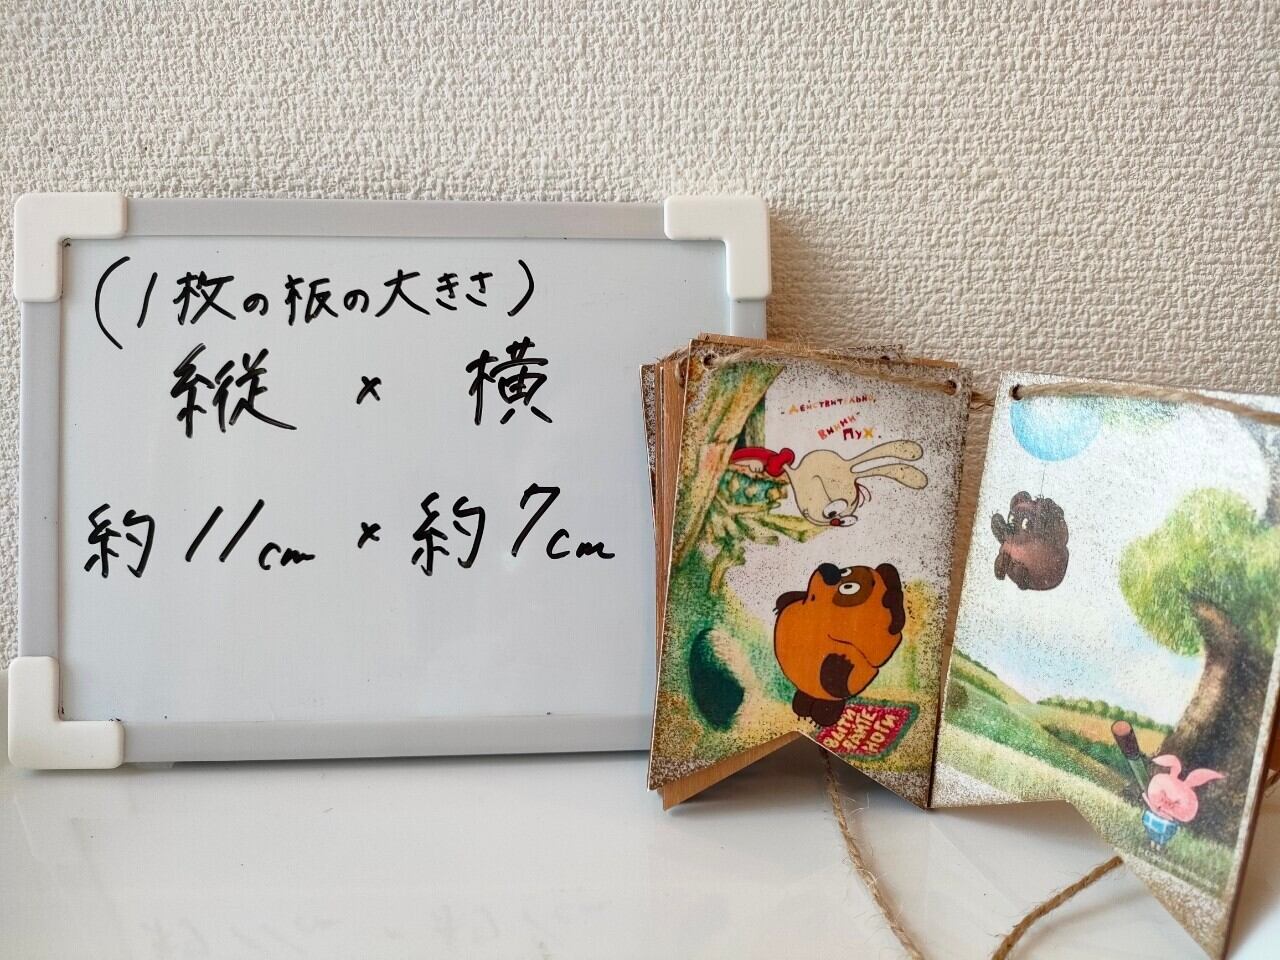 (1枚の板の大きさ)
縦 × 横
約11cm × 約7cm
"Действительно,
Винни"
Пух.
ВЫТИ
РАЙТЕ
НОГИ